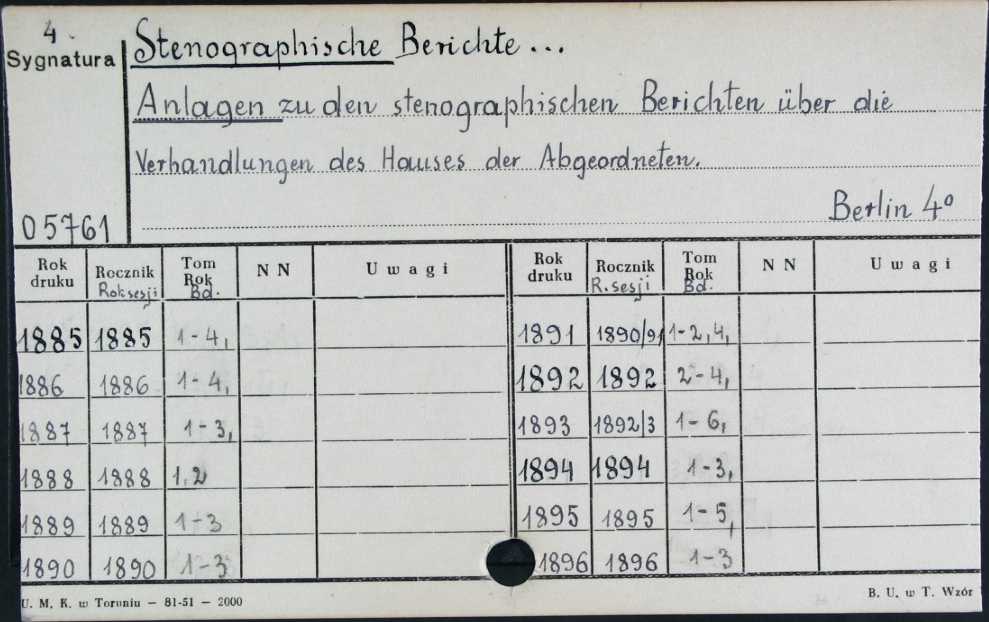 4.
Sygnatura
Stenographische Berichte...
Anlagen zu den stenographischen Berichten über die
Verhandlungen des Hauses der Abgeordneten.
Berlin 4º
05761
Rok druku | Rocznik Rok sesji | Tom Rok Bd. | NN | Uwagi | Rok druku | Rocznik R. sesji | Tom Rok Bd. | NN | Uwagi
1885 | 1885 | 1-4, | 1891 | 1890/91 | 1-2, 4,
1886 | 1886 | 1-4, | 1892 | 1892 | 2-4,
1887 | 1887 | 1-3, | 1893 | 1892/3 | 1-6,
1888 | 1888 | 1, 2 | 1894 | 1894 | 1-3,
1889 | 1889 | 1-3 | 1895 | 1895 | 1-5,
1890 | 1890 | 1-3 | 1896 | 1896 | 1-3
U. M. K. w Toruniu — 81-51 — 2000
B. U. w T. Wzór